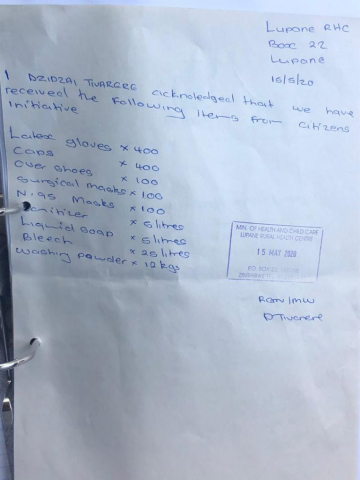 Lupane RHC
Box 22
Lupane
15/5/20
I DZIDZAI TIVARERE acknoledged that we have
received the following items from citizens
initiative
Latex gloves x 400
Caps x 400
Over shoes x 100
Surgical masks x 100
N.95 Masks x 100
Sanitizer x 5 litres
Liquid soap x 5 litres
Bleech x 25 litres
Washing powder x 12 kgs
MIN. OF HEALTH AND CHILD CARE
LUPANE RURAL HEALTH CENTRE
15 MAY 2020
P.O. BOX 22, LUPANE
RGN/MW
DTivarere